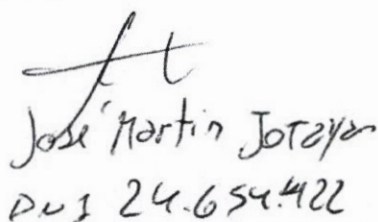 José Martin Jorayan
DNI 24.654.422